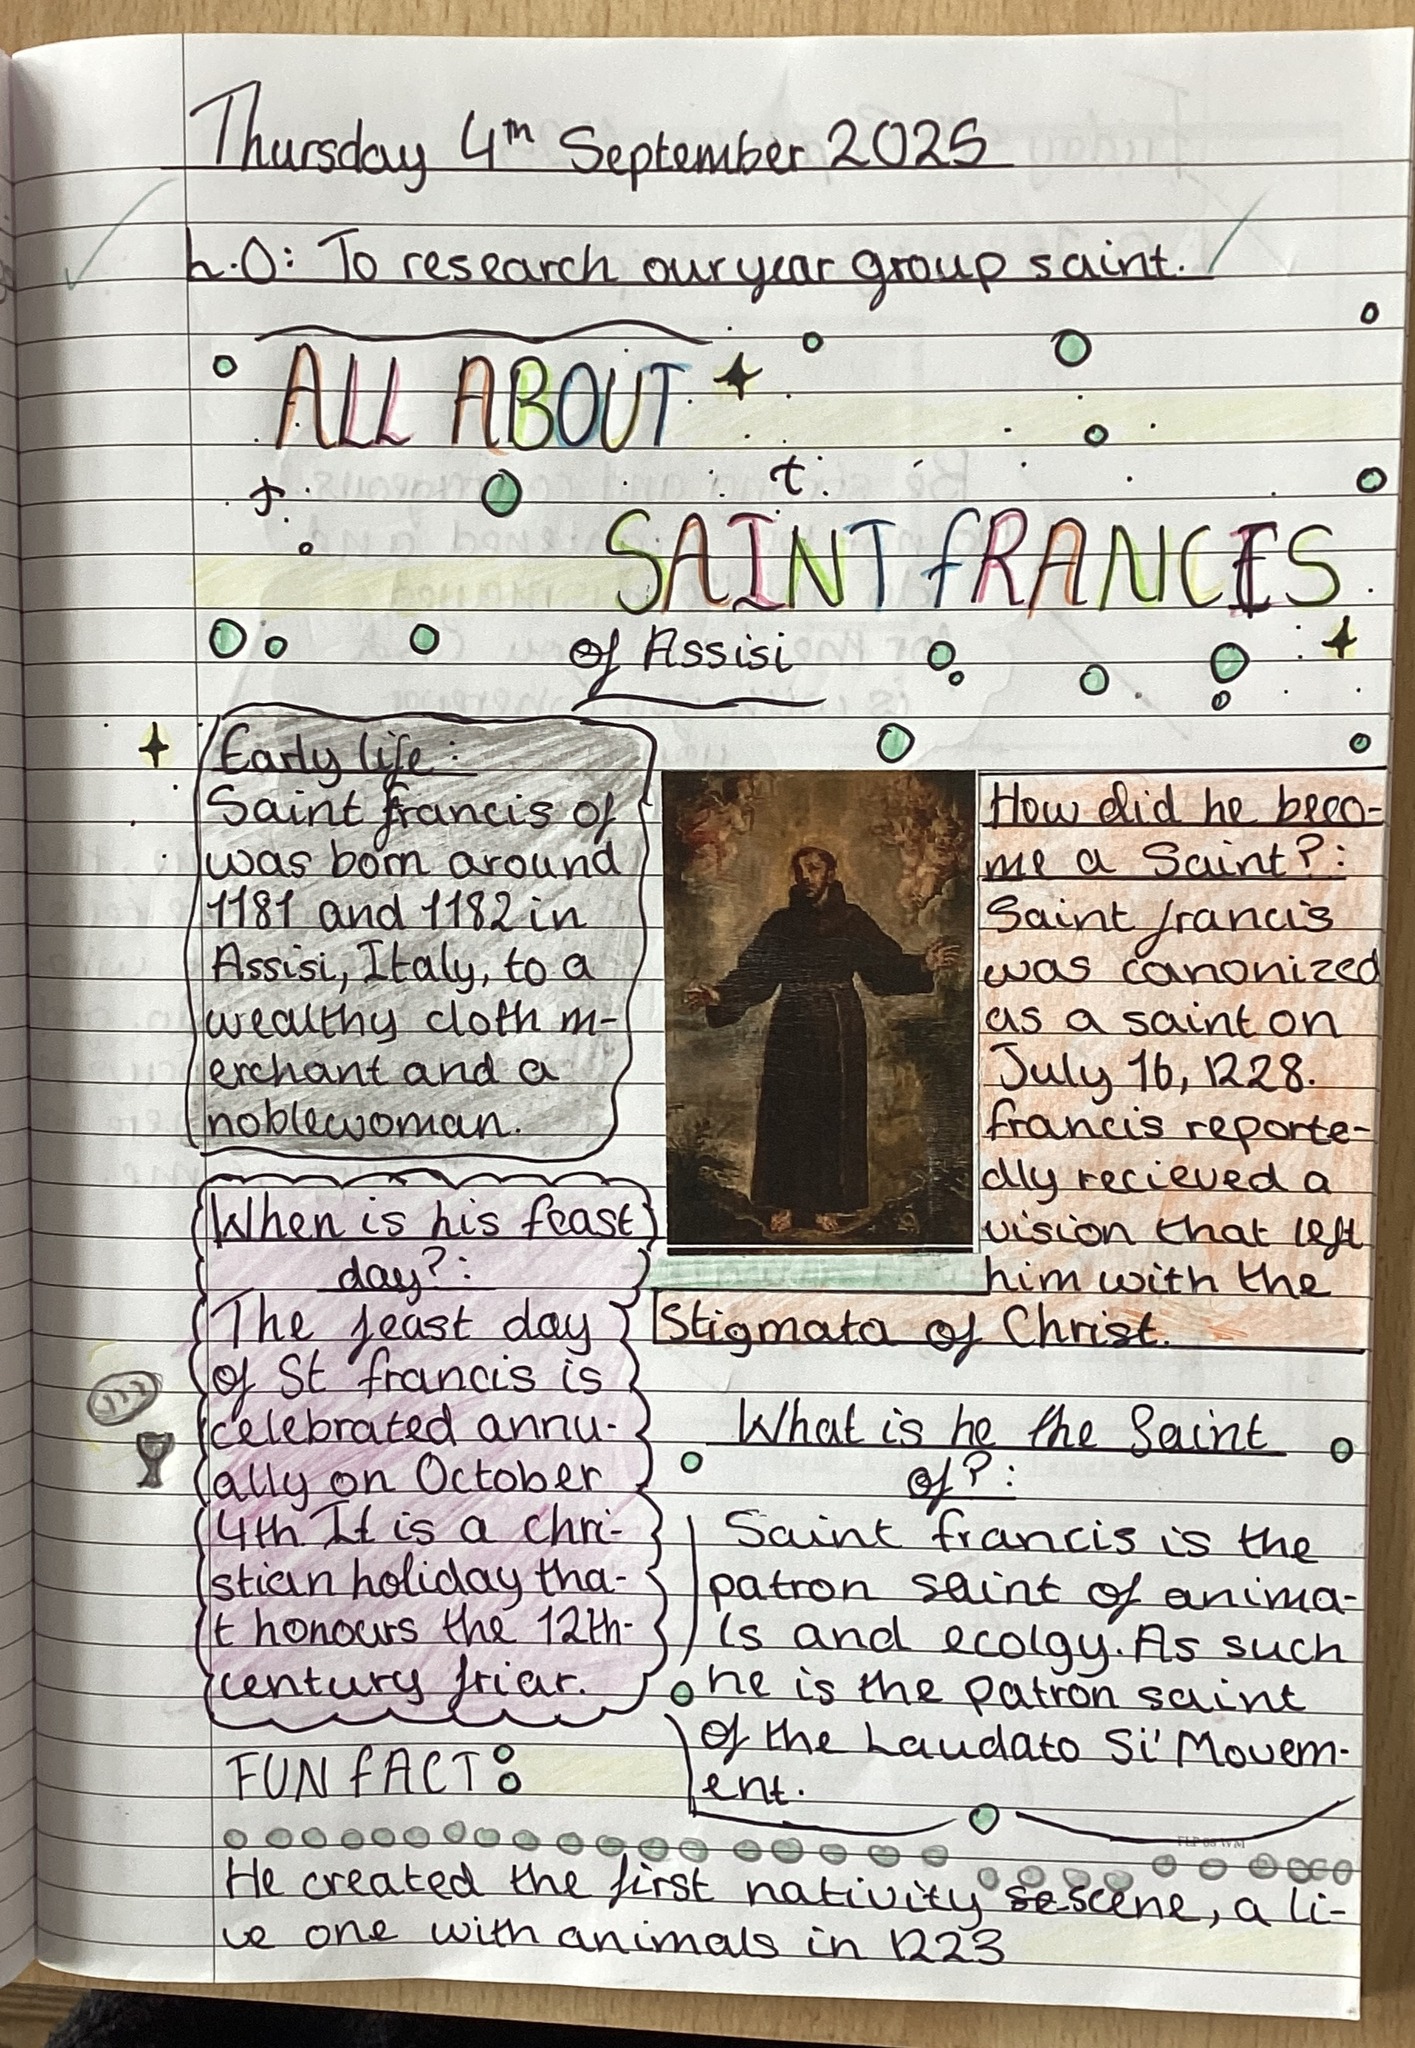 Thursday 4th September 2025
L.O: To research our year group saint.
ALL ABOUT
SAINT fRANCIS
of Assisi
Early life:
Saint francis of
was born around
1181 and 1182 in
Assisi, Italy, to a
wealthy cloth m-
erchant and a
noblewoman.
When is his feast
day?:
The feast day
of St francis is
celebrated annu-
ally on October
4th. It is a chri-
stian holiday tha-
t honours the 12th-
century friar.
How did he beco-
me a Saint?:
Saint francis
was canonized
as a saint on
July 16, 1228.
francis reporte-
dly recieved a
vision that left
him with the
Stigmata of Christ.
What is he the Saint
of?:
Saint francis is the
patron saint of anima-
ls and ecolgy. As such
he is the patron saint
of the Laudato Si' Movem-
ent.
FUN fACT:
He created the first nativity scene, a li-
ve one with animals in 1223